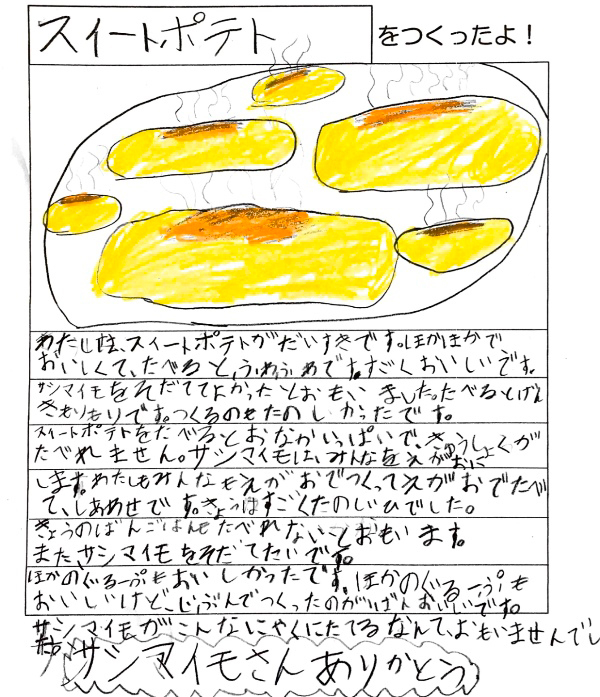 スイートポテト
をつくったよ！
わたしは、スイートポテトがだいすきです。ほかほかで
おいしくて、たべると、ふわふわです。すごくおいしいです。
サツマイモをそだててよかったとおもいました。たべるとげん
きもりもりです。つくるのもたのしかったです。
スイートポテトをたべるとおなかいっぱいで、きゅうしょくが
たべれません。サツマイモは、みんなをえがおに
します。わたしもみんなもえがおでつくってえがおでたべ
て、しあわせです。きょうはすごくたのしいひでした。
きょうのばんごはんもたべれないとおもいます。
また、サツマイモをそだてたいです。
ほかのぐるーぷもおいしかったです。ほかのぐるーぷも
おいしいけど、じぶんでつくったのがいちばんおいしいです。
サツマイモがこんなにやくにたてるなんて、おもいませんでし
サツマイモさんありがとう